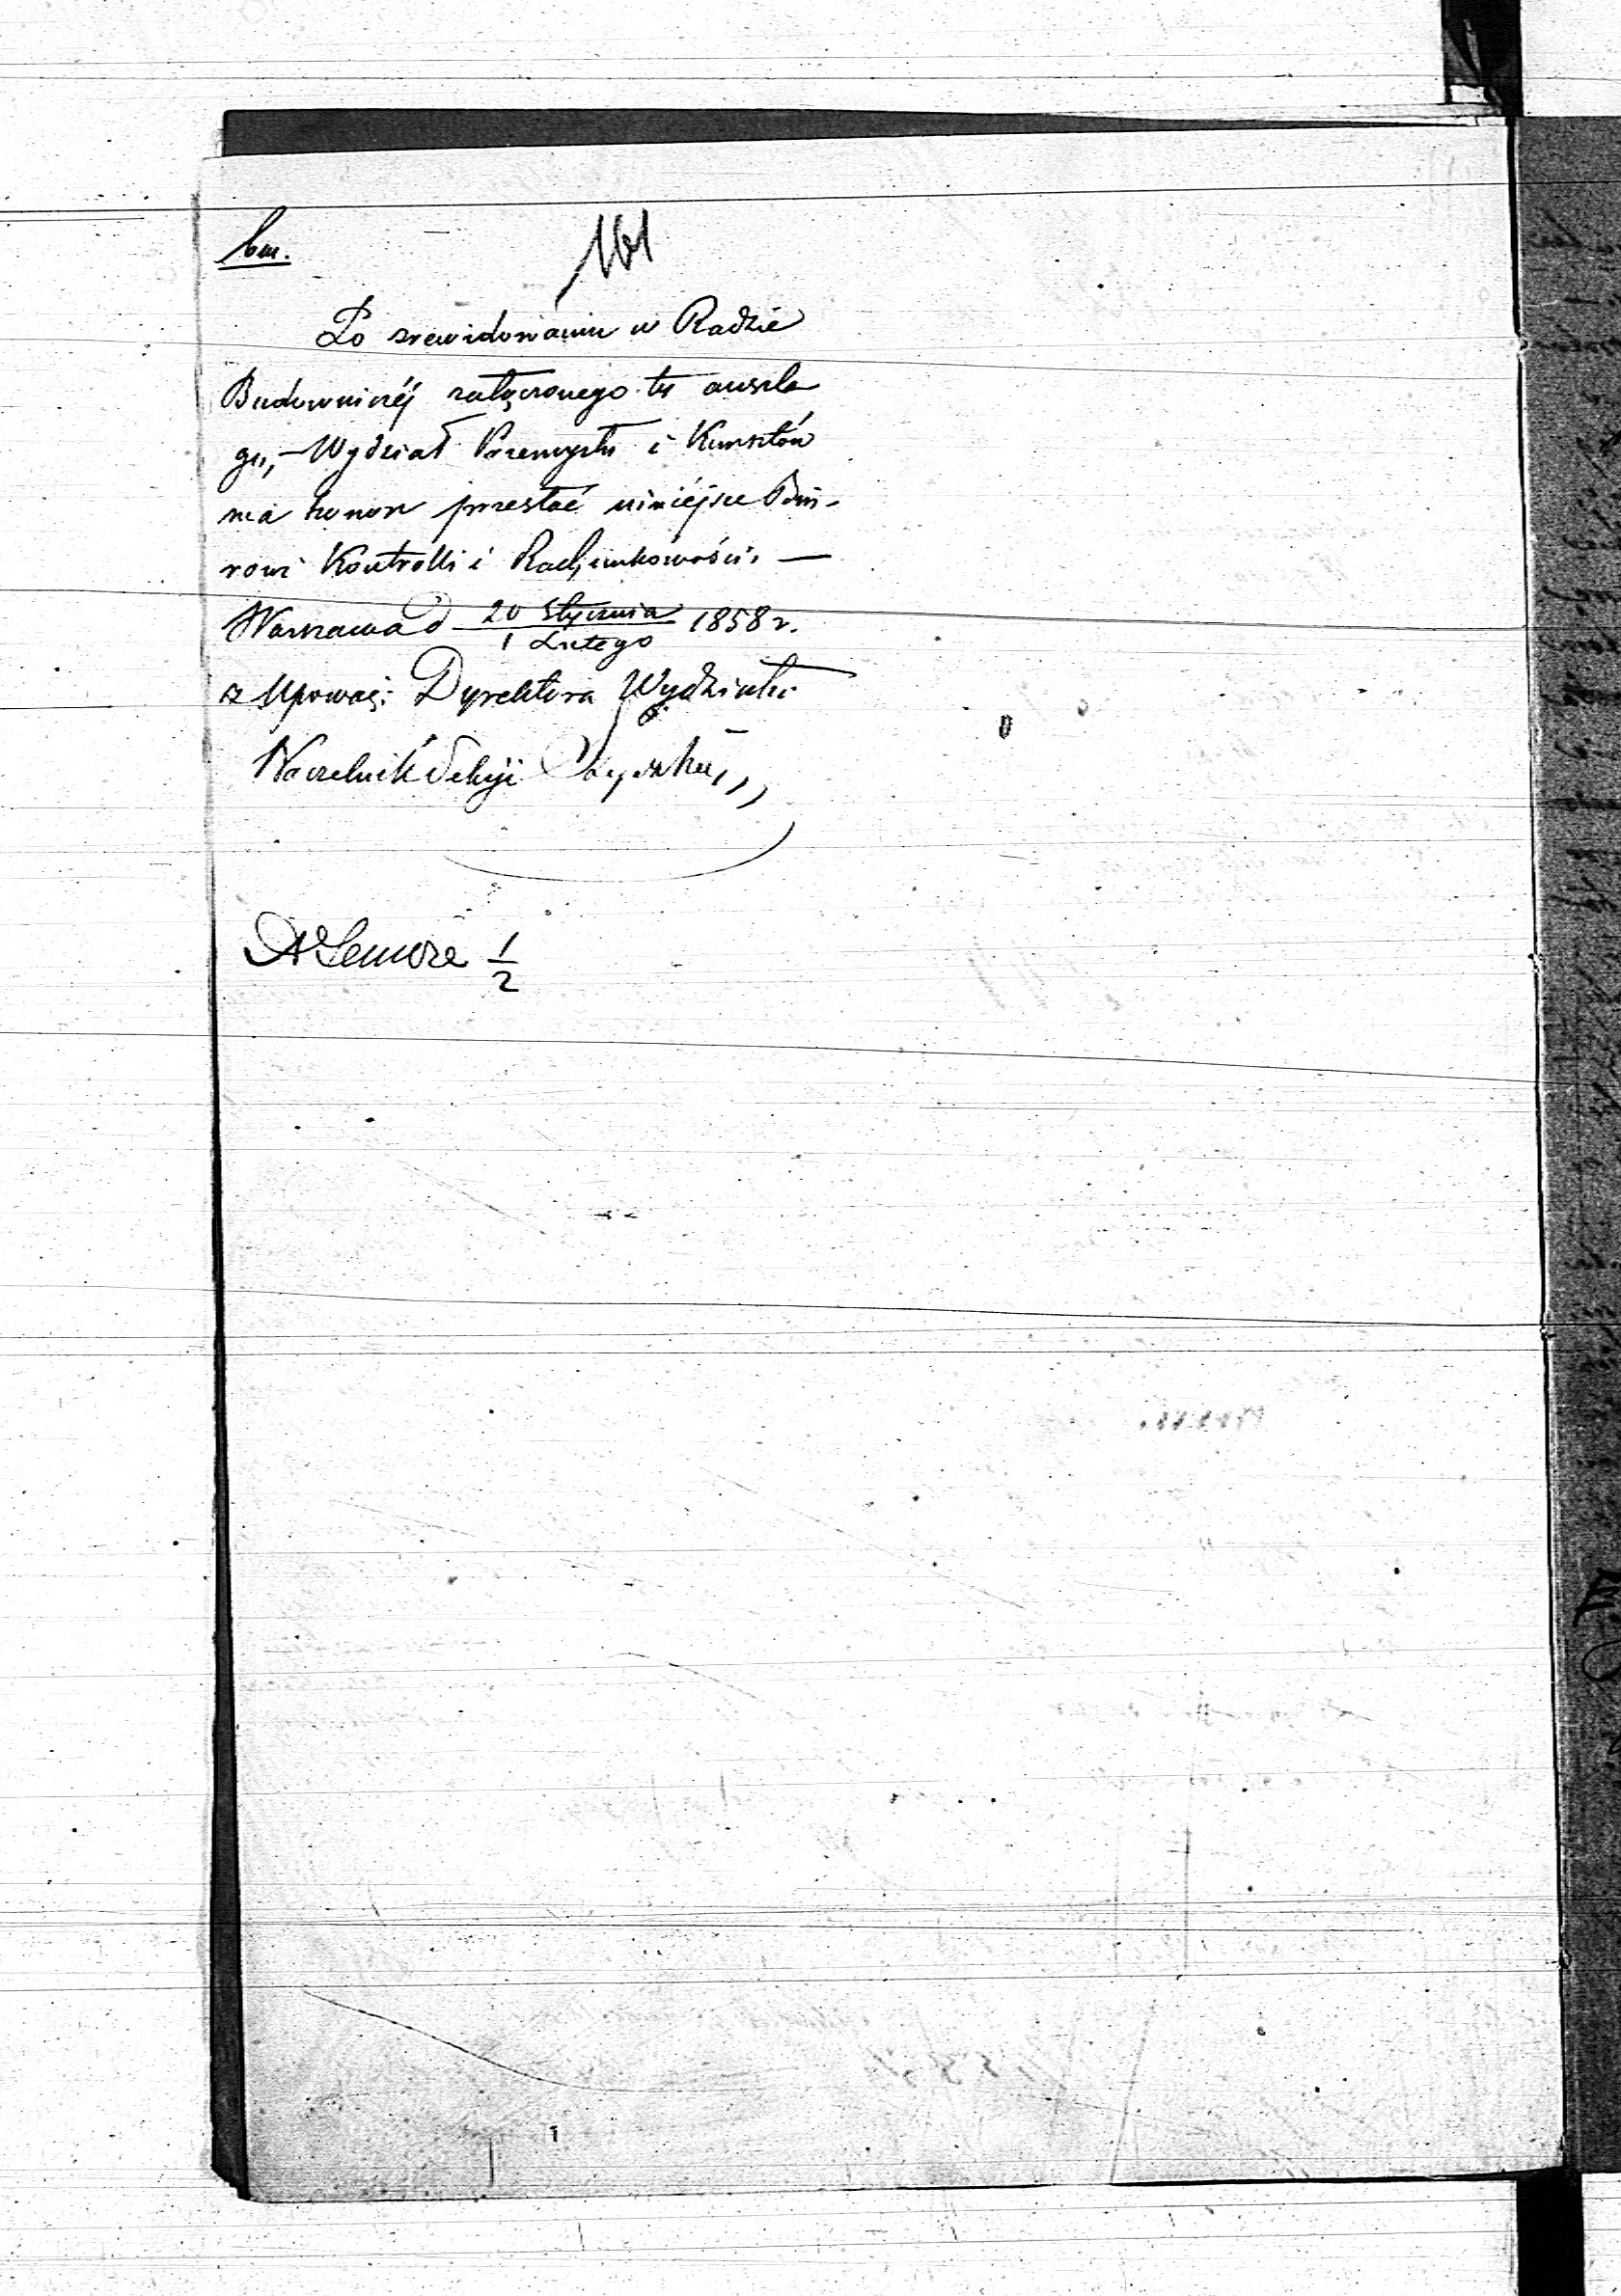 161
Po zrewidowaniu w Radzie
Budowniczéj załączonego tu anszla
gu, – Wydział Przemysłu i Kunsztów
ma honor przesłać niniéjsze Biu-
rowi Kontrolli i Rachunkowości. —
Warszawa d 20 Stycznia 1858 r.
1 Lutego
z Upoważ: Dyrektora Wydziału
Naczelnik Sekcji
1
2